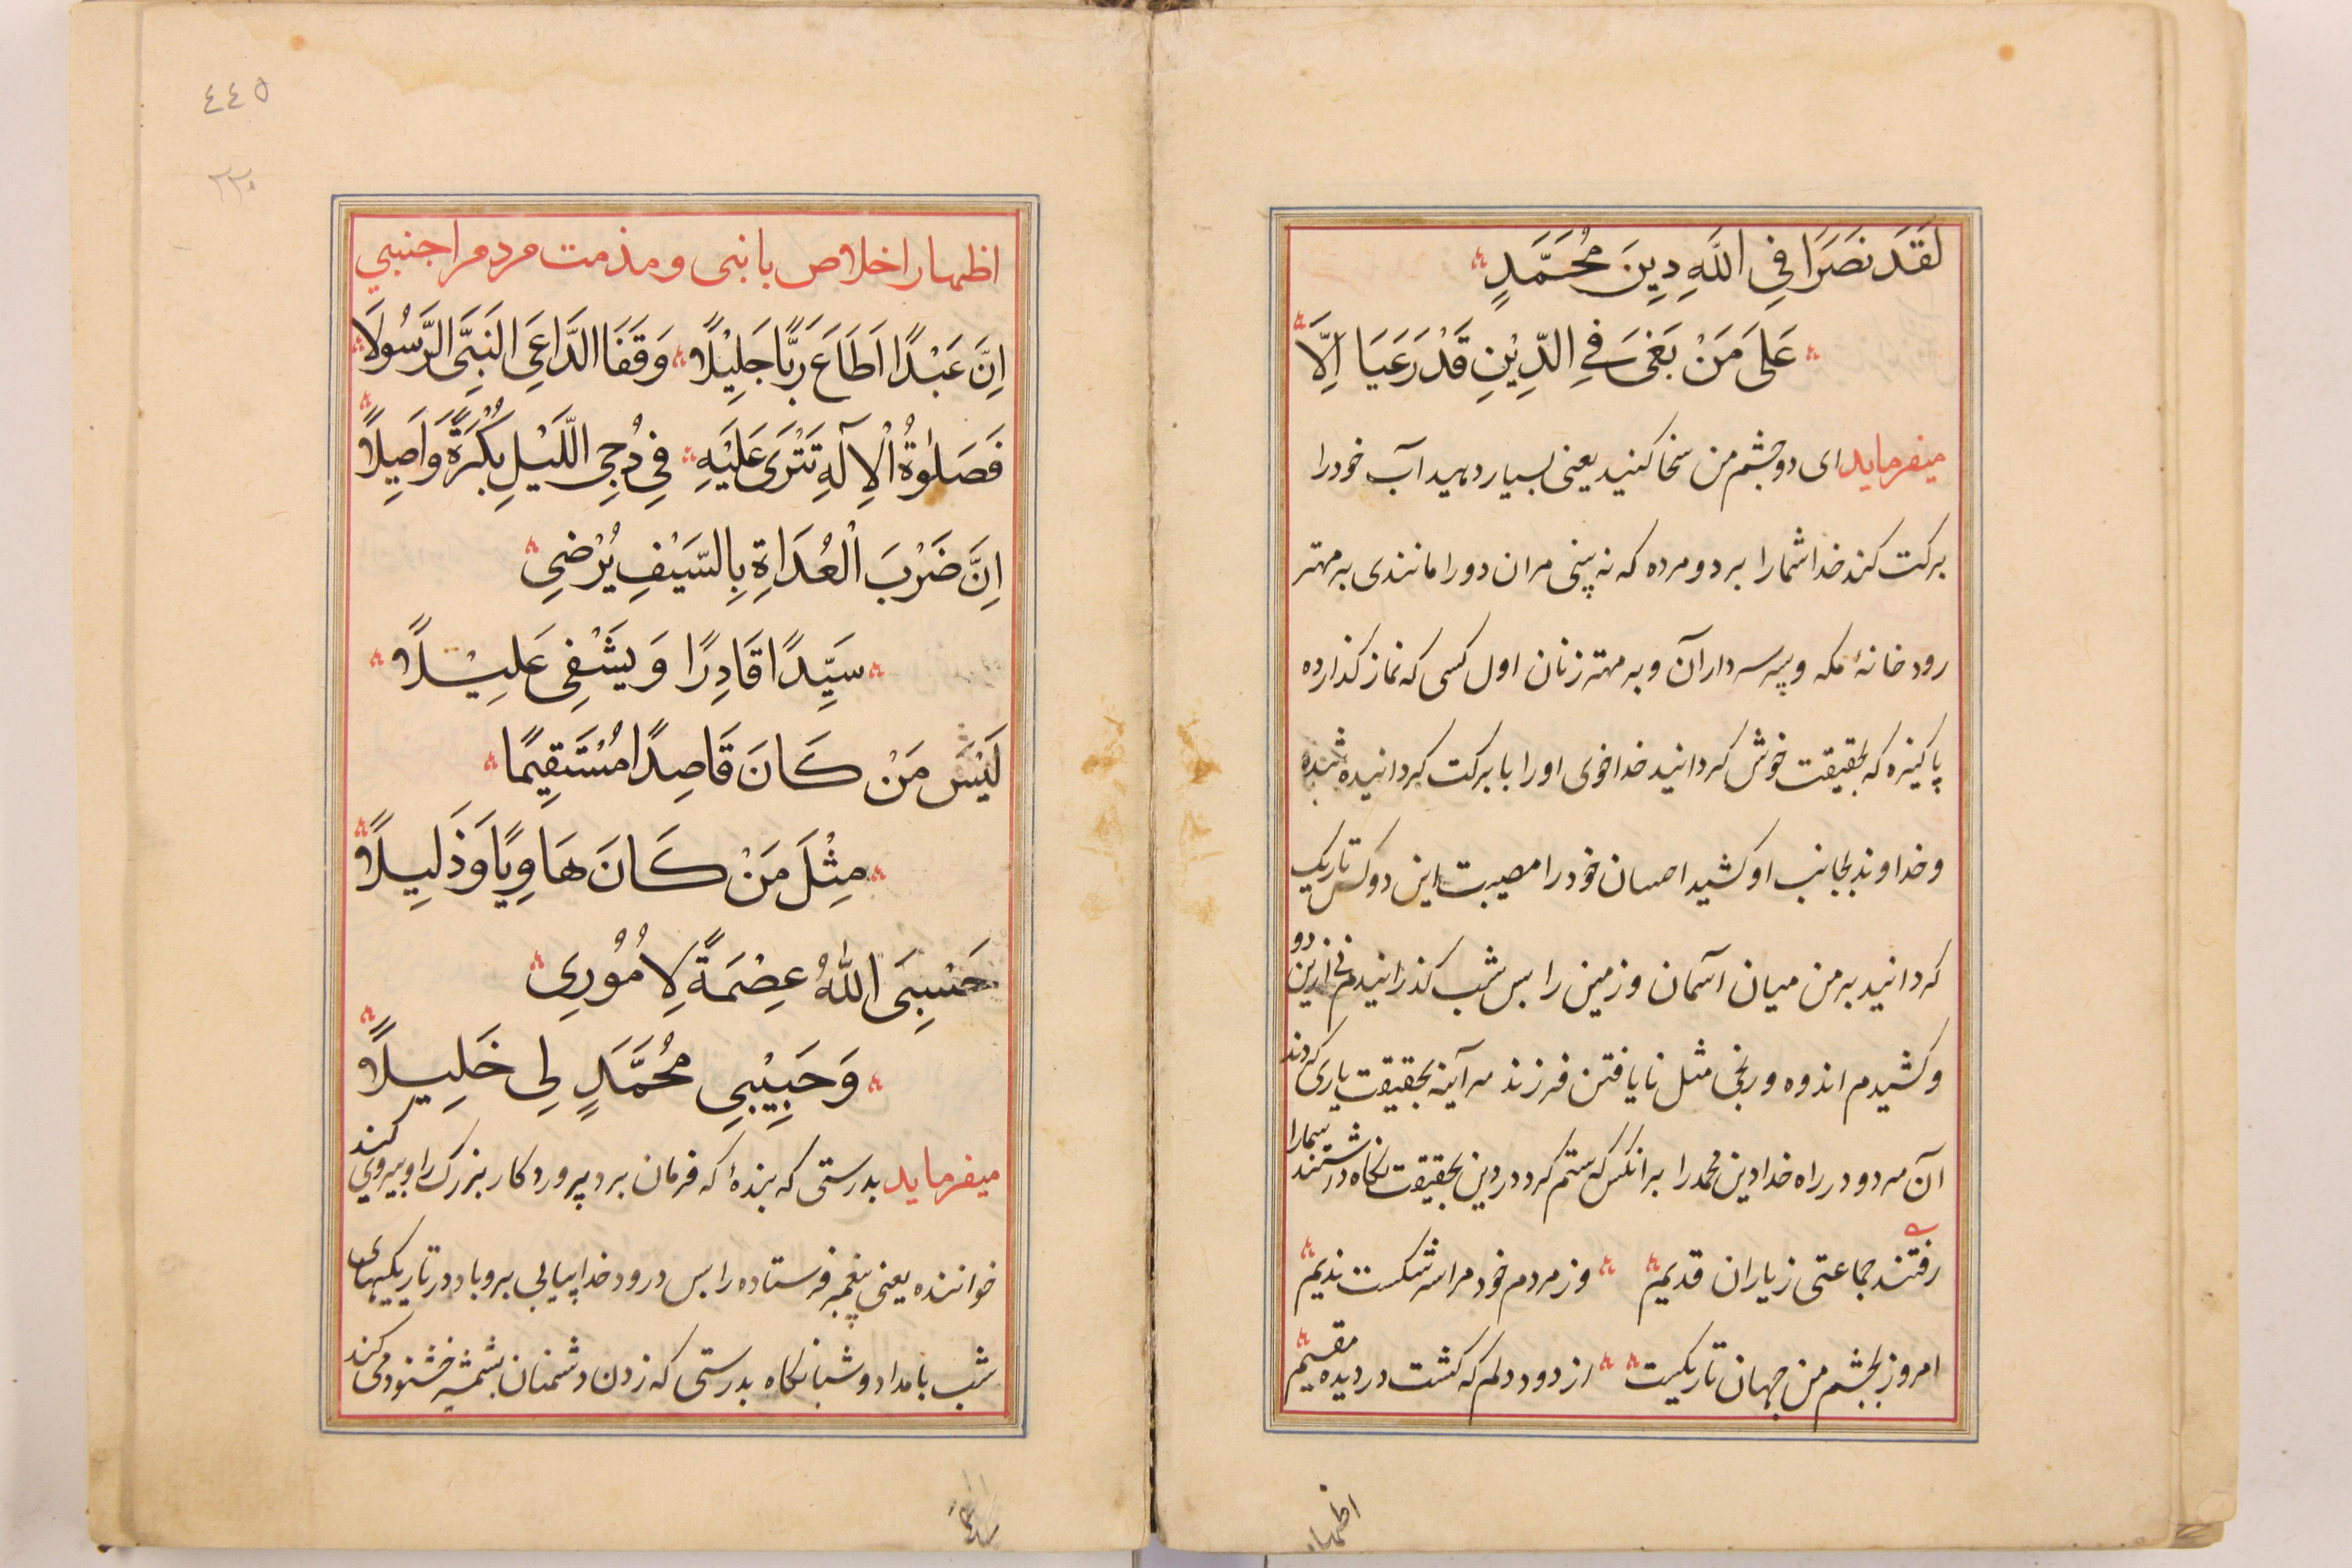 لَقَدَ نَصَرَا فِي اللَّهِ دِينَ مُحَمَّدٍ
عَلَى مَنْ بَغَى فِي الدِّيْنِ قَدْ رَعَيَا اِلَّا
میفرماید ای دو چشم من سخا کنید یعنی بسیار دهید آب خود را
برکت کند خدا شما را بر دو مرده که نه بینی مر ان دو را مانندی بر مهتر
رود خانهٔ مکه و پسر سرداران آن و بر مهتر زنان اول کسی که نماز گذارده
پاکیزه که بحقیقت خوش گردانید خدا خوی او را با برکت گردانیده شده
و خداوند بجانب او کشید احسان خود را مصیبت این دو کس تاریک
گردانید بر من میان آسمان و زمین را بس شب گذرانیدم ازین دو
و کشیدم اندوه و رنجی مثل نایافتن فرزند هر آینه بحقیقت یاری کردند
آن هر دو در راه خدا دین محمد را بر انکس که ستم کرد در دین بحقیقت نگاه داشتند شما را
رفتند جماعتی ز یاران قدیم وز مردم خود مرا سر شکست ندیم
امروز بچشم من جهان تاریکیت از دود دلم که گشت در دیده مقیم
اظهار
٤٤٥
٢٢٠
اظهار اخلاص با نبی و مذمت مردم اجنبی
اِنَّ عَبْدًا اَطَاعَ رَبًّا جَلِيْلًا وَقَفَا الدَّاعِيَ النَبِيَّ الرَّسُولَا
فَصَلٰوةُ الْاِلٰهِ تَتْرَى عَلَيْهِ فِي دُجِي اللَّيْلِ بُكْرَةً وَاَصِيلًا
اِنَّ ضَرْبَ الْعُدَاةِ بِالسَّيْفِ يُرْضِي
سَيِّدًا قَادِرًا وَ يَشْفِي عَلِيْلًا
لَيْسَ مَنْ كَانَ قَاصِدًا مُسْتَقِيمًا
مِثْلَ مَنْ كَانَ هَاوِيًا وَذَلِيلًا
حَسْبِيَ اللّٰهُ عِصْمَةً لِاُمُوْرِي
وَحَبِيْبِي مُحَمَّدٍ لِي خَلِيلًا
میفرماید بدرستی که بندهٔ که فرمان برد پروردکار بزرک را و پیروی کند
خواننده یعنی پیغمبر فرستاده را بس درود خدا پیاپی برو باد در تاریکیهای
شب بامداد و شبانگاه بدرستی که زدن دشمنان بشمشیر خشنود می کند